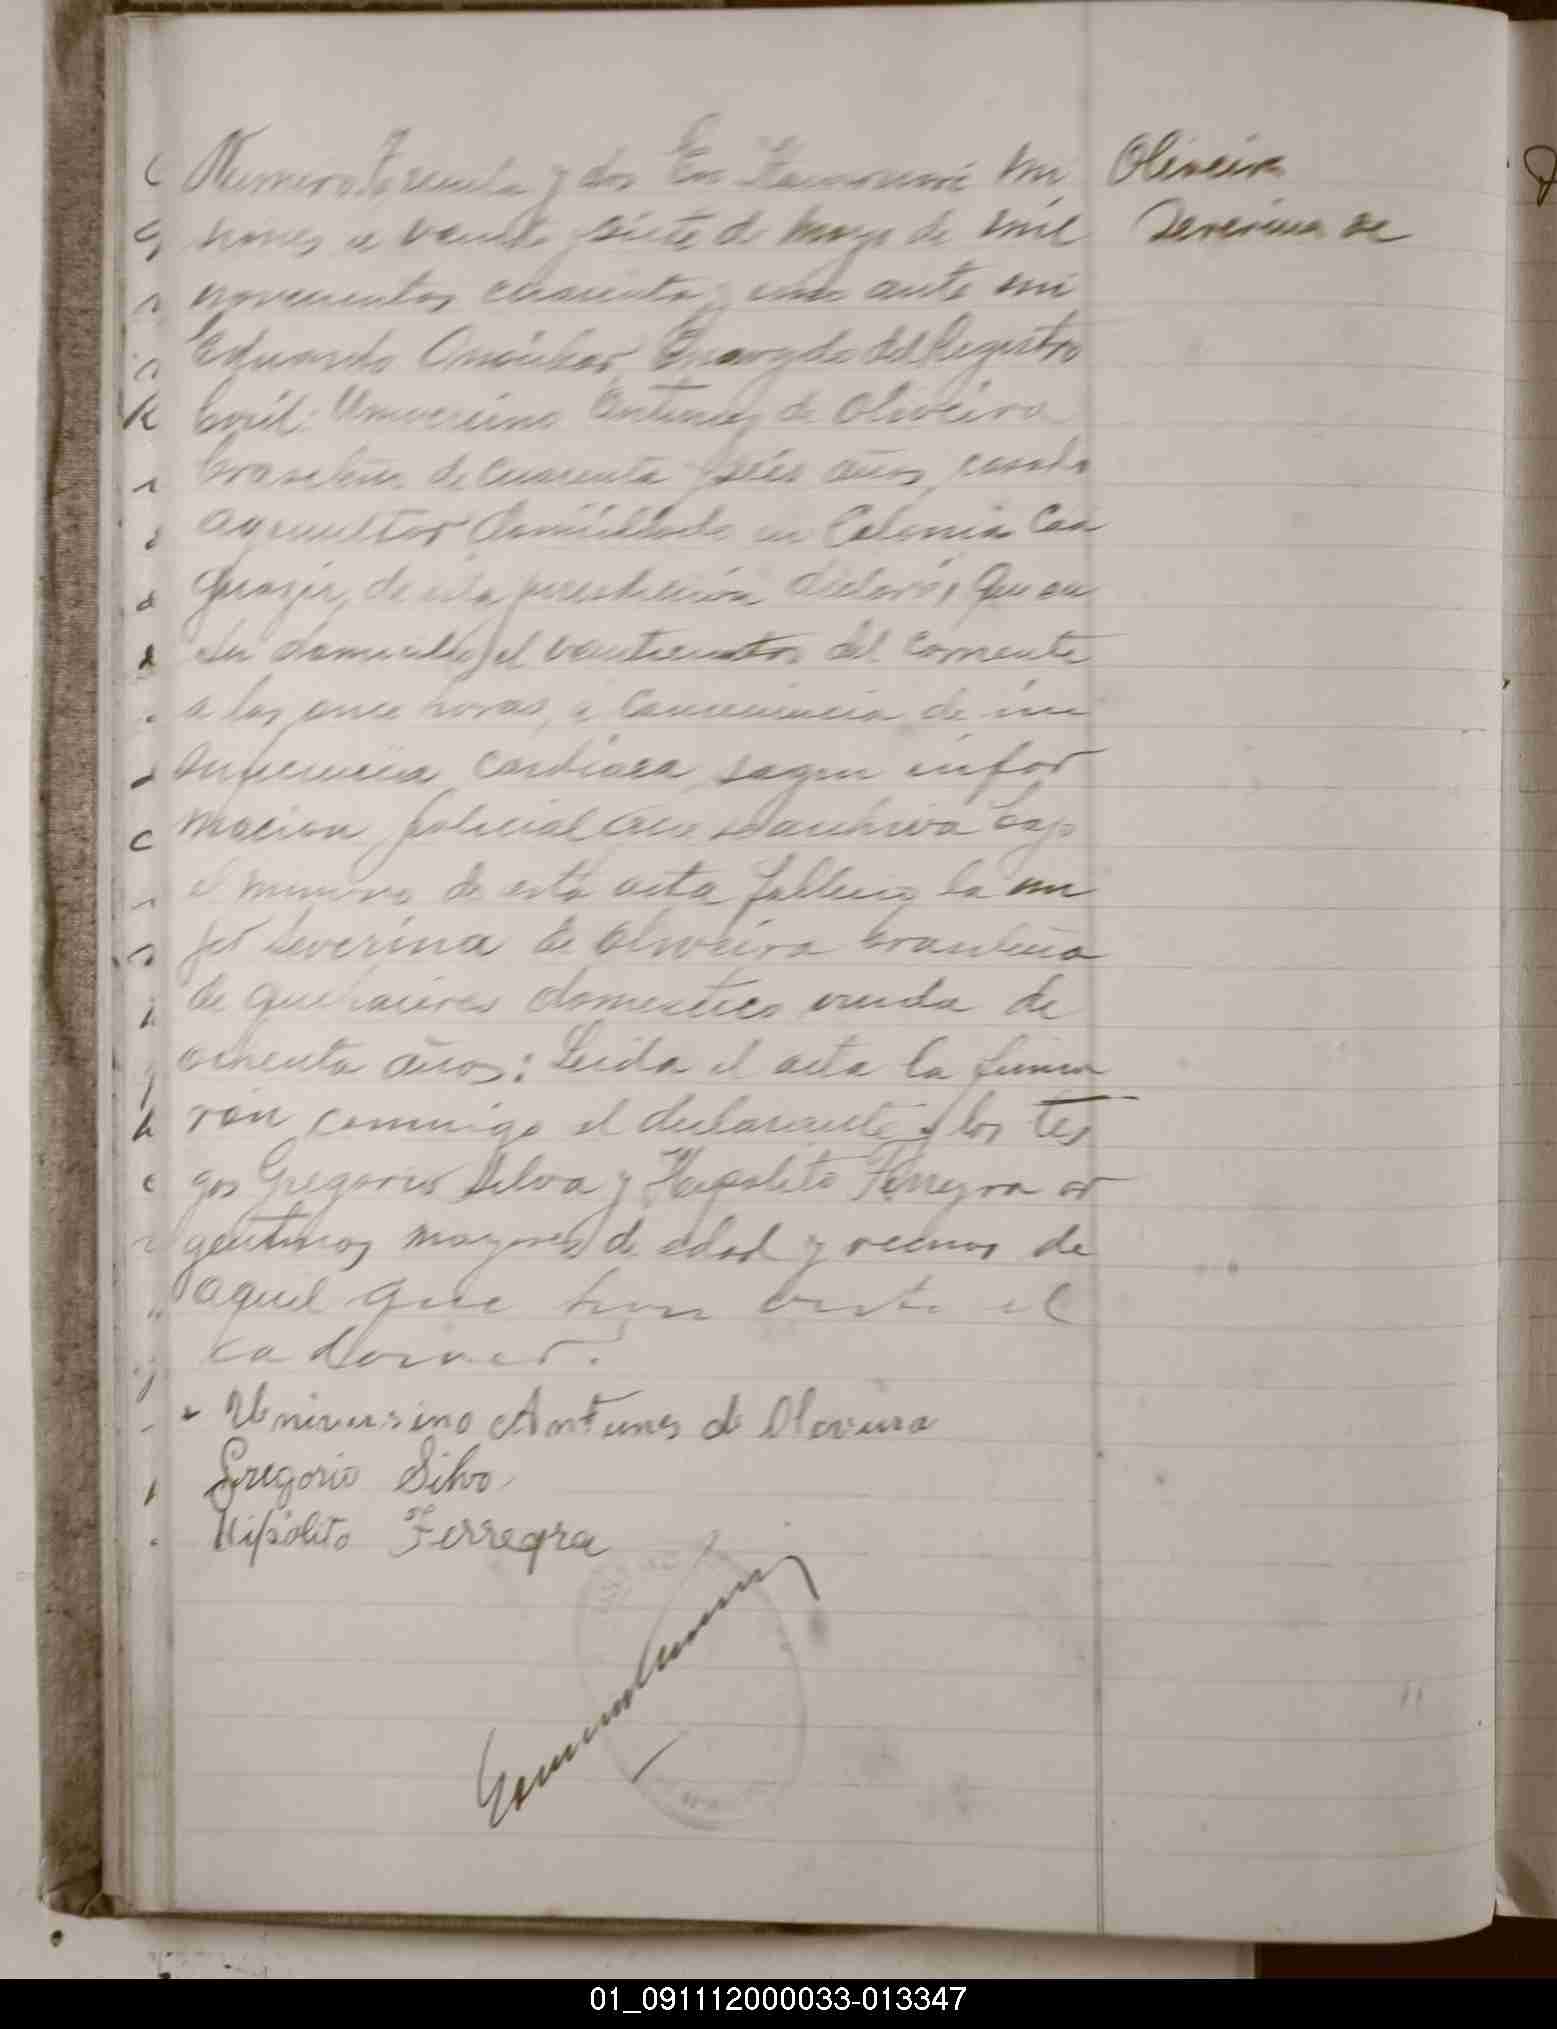 Numero Treinta y dos En Mi Oliveira
siones a veinte y siete de mayo de mil Severina de
novecientos cuarenta y uno ante mi
Eduardo Encargdo del Registro
Civil: Universino Antunes de Oliveira
brasileño de cuarenta y seis años, casado
agricultor domiciliado en Colonia Caa
Guazú, de esta jurisdicción declaró; Que en
su domicilio, el del corriente
a las once horas, a consecuencia de in
suficiencia cardiaca, segun infor
macion policial que se archiva bajo
el numero de esta acta fallecio la mu
jer Severina de Oliveira brasileña
de quehaceres domestico viuda de
años: Leida el acta la firma
ron conmigo el declarante y los tes
gos Gregorio Silva y Hipolito Ferreyra ar
gentinos mayores de edad y vecinos de
aquel que han visto el
cadaver.
Universino Antunes de Oliveira
Gregorio Silva
Hipólito Ferreyra
01_091112000033-013347